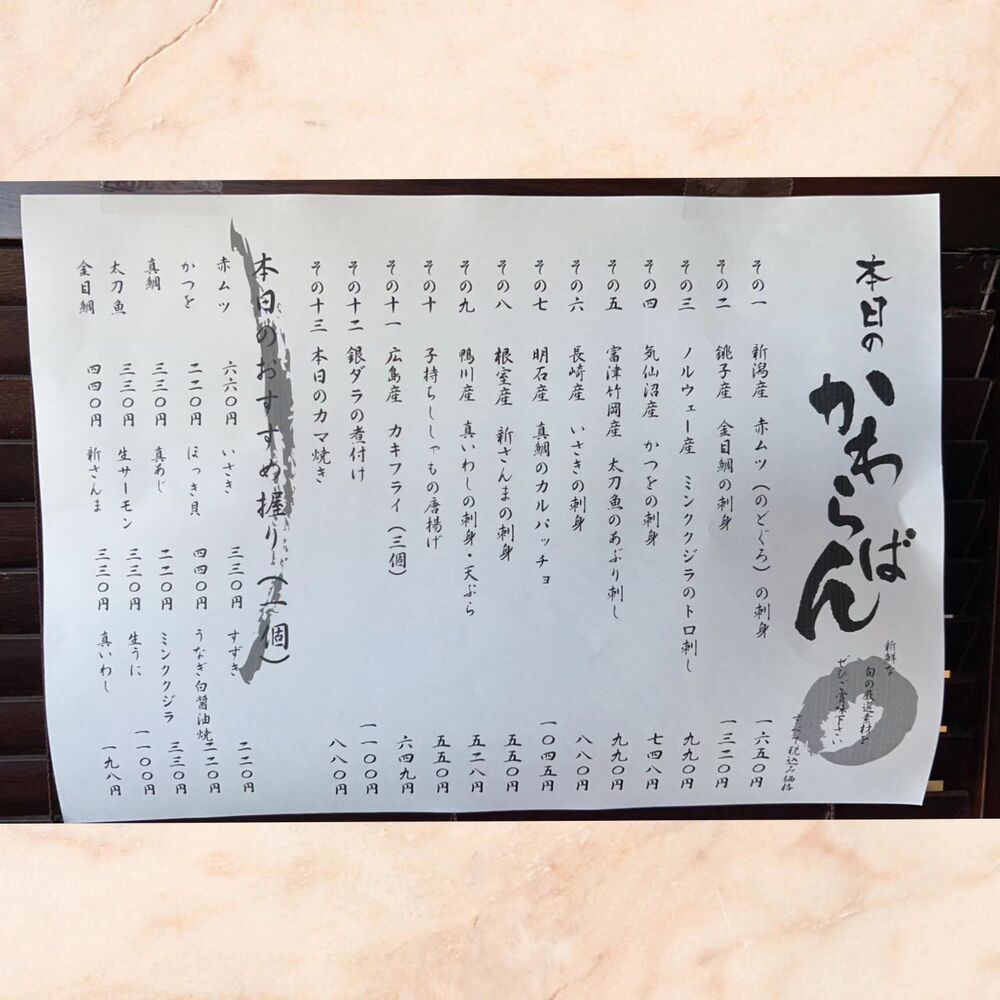 本日の かわらばん
新鮮な
旬の厳選素材を
ぜひご賞味下さい
すべて税込み価格
その一 新潟産 赤ムツ（のどぐろ）の刺身 一六五〇円
その二 銚子産 金目鯛の刺身 一三二〇円
その三 ノルウェー産 ミンククジラのトロ刺し 九九〇円
その四 気仙沼産 かつをの刺身 七四八円
その五 富津竹岡産 太刀魚のあぶり刺し 九九〇円
その六 長崎産 いさきの刺身 八八〇円
その七 明石産 真鯛のカルパッチョ 一〇四五円
その八 根室産 新さんまの刺身 五五〇円
その九 鴨川産 真いわしの刺身・天ぷら 五二八円
その十 子持ちししゃもの唐揚げ 五五〇円
その十一 広島産 カキフライ（三個） 六四九円
その十二 銀ダラの煮付け 一一〇〇円
その十三 本日のカマ焼き 八八〇円
本日のおすすめ握り（一個）
赤ムツ 六六〇円 いさき 三三〇円 すずき 二二〇円
かつを 二二〇円 ほっき貝 四四〇円 うなぎ白醤油焼 二二〇円
真鯛 三三〇円 真あじ 二二〇円 ミンククジラ 三三〇円
太刀魚 三三〇円 生サーモン 三三〇円 生うに 一一〇〇円
金目鯛 四四〇円 新さんま 三三〇円 真いわし 一九八円